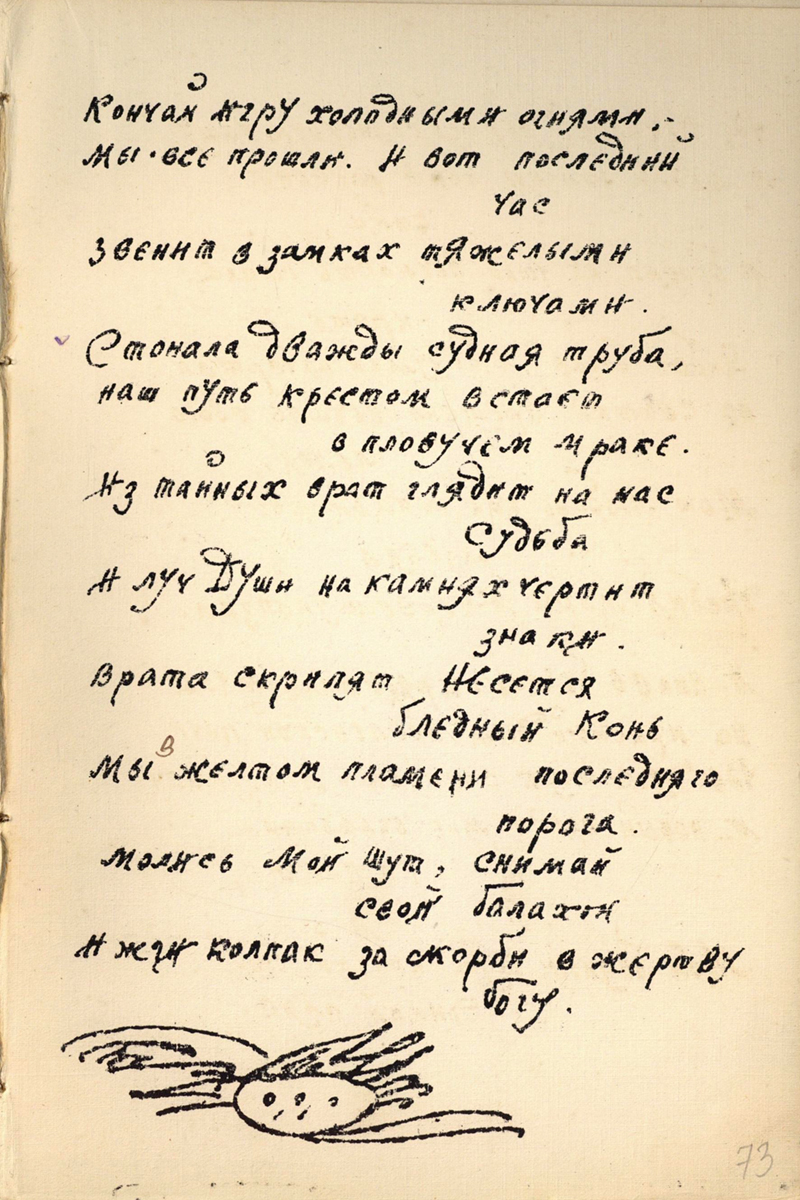 Кончай игру холодными огнями,-
Мы все прошли. И вот последний
час
Звенит в замках тяжелыми
ключами.
Стонала дважды судная труба,
наш путь крестом встает
в пловучем мраке.
Из тайных врат глядит на нас
Судьба
И луч Души на камнях чертит
знаки.
Врата скрипят Несется
бледный Конь
Мы в желтом пламени последняго
порога.
Молись Мой Шут, снимай
свой балахон
И жги колпак за скорби в жертву
богу.
73